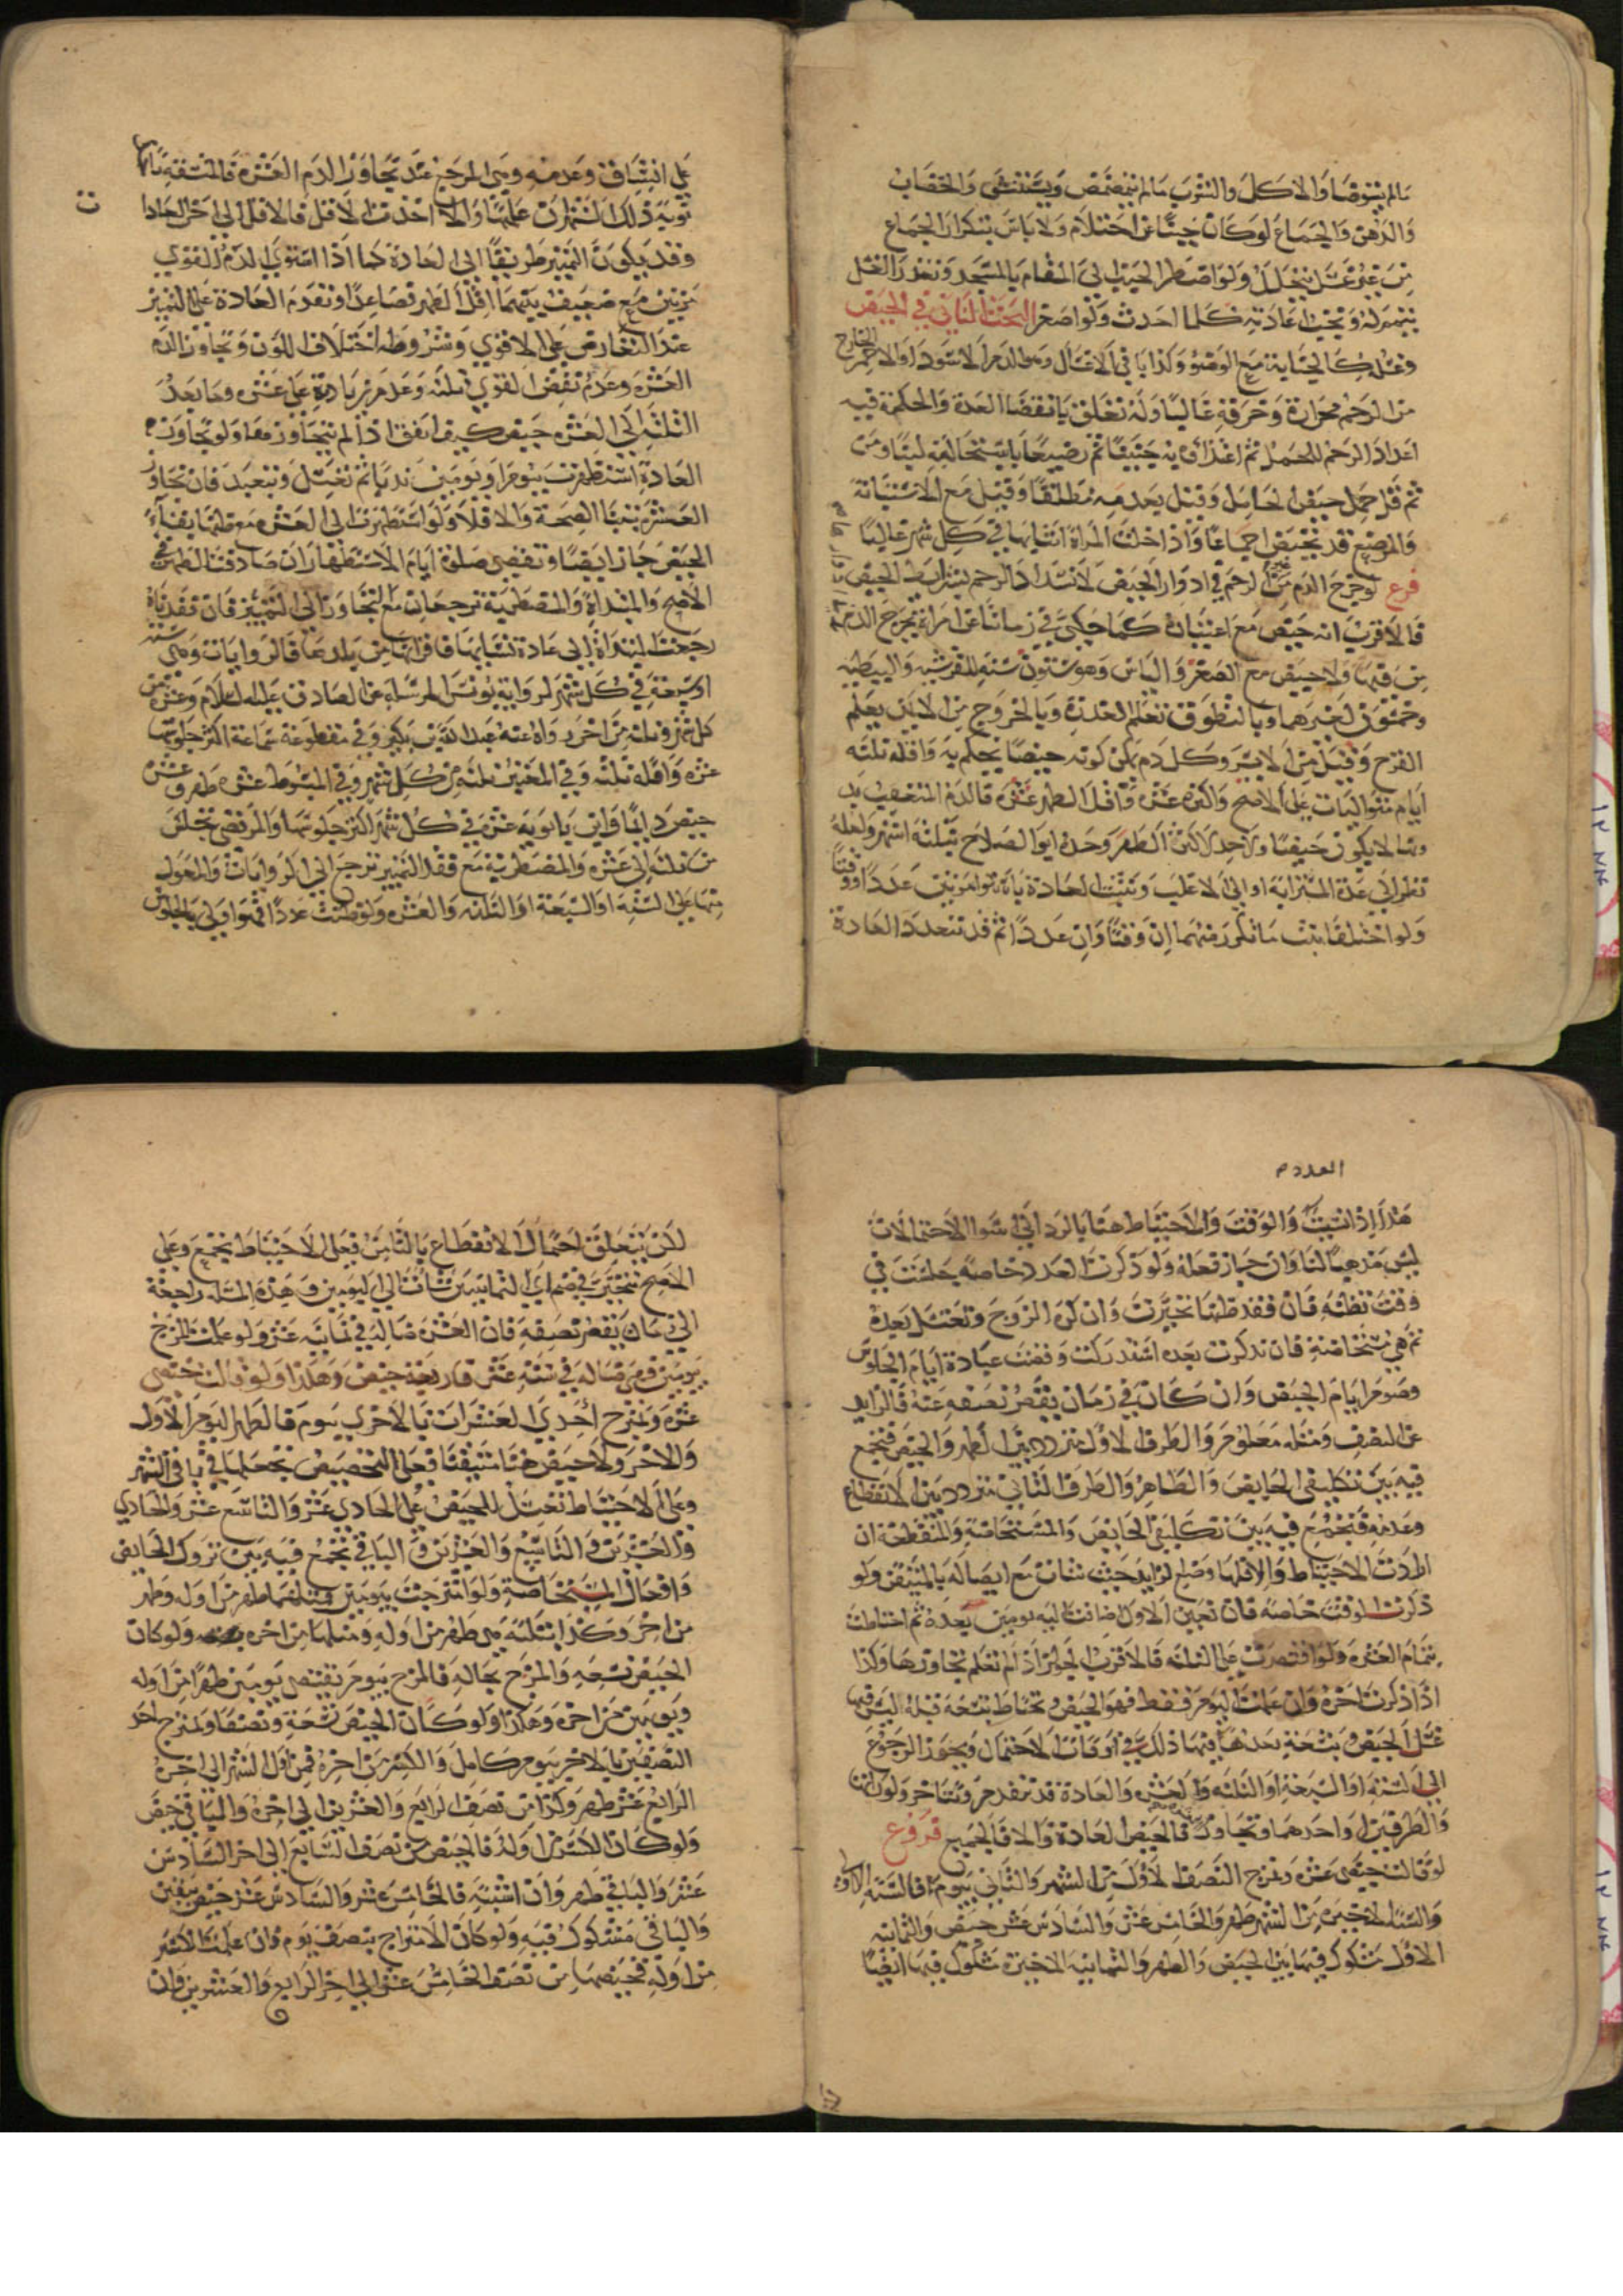 مالم يتوضا والاكل والشرب مالم يتمضمض ويستنشق والخضاب
والدهن والجماع لو كان جنبا عن احتلام ولا باس بتكرار الجماع
من غير غسل يتخلل ولو اضطر الجنب الى المقام بالمسجد وتعذر الغسل
تيمم له ويجب اعادته كلما احدث ولو اصغر البحث الثاني في الحيض
وغسله كالجنابة مع الوضوء وكذا باقي الاغسال وهو الدم الاسود او الاحمر الخارج
من الرحم بحرارة وحرقة غالبا وله تعلق بانقضا العدة والحكمة فيه
اعداد الرحم للحمل ثم اغتذاؤه به جنينا ثم رضيعا باستحالته لبنا ومن
ثم قل حيض الحامل وقيل يعدمه مطلقا وقيل مع الاستبانة
والمرضع قد تحيض اجماعا واذا خلت المراة اتيانها في كل شهر غاليا
فرع لو خرج الدم من غير الرحم في ادوار الحيض لانسداد الرحم بشرايط الحيض
فالاقرب انه حيض مع اعتياده كما حكي في زماننا عن امراة يخرج الدم
من فيها ولا حيض مع الصغر والياس وهو ستون سنة للقرشية والنبطية
وخمسون لغيرهما وبالتطوق تعلم العذرة وبالخروج من الايمن يعلم
القرح وقيل من الايسر وكل دم يمكن كونه حيضا يحكم به واقله ثلثة
ايام متواليات على الاصح واكثره عشرة واقل الطهر عشرة فالدم المتعقب بدونها
لا يكون حيضا ولا حد لاكثر الطهر وحده ابو الصلاح بثلثة اشهر ولعله
نظر الى عدة المسترابة او الى الاغلب وتثبت العادة باستوا مرتين عددا ووقتا
ولو اختلفا ثبت ما تكرر منهما ان وقتا وان عددا ثم قد تتعدد العادة
على اتساق وعدمه وهي المرجع عند تجاوز الدم العشرة فالمتسقة تاخذ
نوبة ذلك الشهر ان علمتها والا اخذت الاقل فالاقل الى اخر العادات
وقد يكون التمييز طريقا الى العادة كما اذا استوى الدم القوي
مرتين مع ضعيف بينهما اقل الطهر فصاعدا وتقدم العادة على التمييز
عند التعارض على الاقوى وشروطه اختلاف اللون وتجاوز الدم
العشرة وعدم نقص القوي ثلثة وعدم زيادته على عشرة وما بعد
الثلثة الى العشرة حيض كيف اتفق اذا لم يتجاوز مع ولو تجاوز
العادة استظهرت بيوم او يومين ندبا ثم تغتسل وتتعبد فان تجاوز
العشرة تبينا الصحة والا فلا ولو استظهرت الى العشرة مع ظنها بقاء
الحيض جاز ايضا وتقضي صلوة ايام الاستظهار ان صادفت الطهر في
الاصح والمبتداة والمضطربة ترجعان مع التجاوز الى التمييز فان فقدتاه
رجعت المبتداة الى عادة نسايها فاقرانها من بلدها فالروايات وهي ستة
او سبعة في كل شهر لرواية يونس المرسلة عن الصادق عليه السلام وعشرة من
كل شهر وثلثة من اخر رواه عنه عبد الله بن بكير وفي مقطوعة سماعة اكثر جلوسها
عشرة واقله ثلثة وفي المعتبر ثلثة من كل شهر وفي المبسوط عشرة طهر وعشرة
حيض دايما وابن بابويه عشرة في كل شهر اكثر جلوسها والمرتضى تجلس
من ثلثة الى عشرة والمضطربة مع فقد التمييز ترجع الى الروايات والمعول
منها على الستة او السبعة او الثلثة والعشرة ولو ظنت عددا فهو اولى بالجلوس
العدد م
هذا اذا نسيت والوقت والاحتياط هنا بالرد الى اسوا الاحتمالات
ليس مذهبا لنا وان جاز فعله ولو ذكرت العدد خاصة جلست في
وقت تظنه فان فقد ظنها تخيرت وان كره الزوج وتغتسل بعده
ثم هي مستحاضة فان تذكرت بعده استدركت وقضت عبادة ايام الجلوس
وصوم ايام الحيض وان كان في زمان يقصر نصفه عنه فالزايد
عن النصف ومثله معلوم والطرف الاول متردد بين الطهر والحيض فتجمع
فيه بين تكليفي الحايض والطاهر والطرف الثاني متردد بين الانقطاع
وعدمه فتجمع فيه بين تكليفي الحايض والمستحاضة والمنقطعة ان
اردت الاحتياط والا فلها وضع الزايد حيث شات مع ايصاله بالمتيقن ولو
ذكرت الوقت خاصة فان تعين الاول اضافت اليه يومين بعده ثم احتاطت
بتمام العشرة ولو اقتصرت على الثلثة فالاقرب الجواز اذ لم تعلم تجاوزها وكذا
اذا ذكرت اخره وان علمت اليوم فقط فهو الحيض وتحتاط بتسعة قبله ليس فيها
غسل الحيض وبتسعة بعدها فيها ذلك في اوقات الاحتمال ويجوز الرجوع
الى الستة او السبعة او الثلثة والعشرة والعادة قد تتقدم وتتاخر ولو رات
والطرفين او احدهما وتجاوز فالحيض العادة والا فالجميع فروع
لو قالت حيضي عشرة وتمزج النصف الاول من الشهر والثاني بيوم فالستة الاولى
والستة الاخيرة من الشهر طهر والخامس عشر والسادس عشر حيض والثمانية
الاول مشكوك فيها بين الحيض والطهر والثمانية الاخيرة مشكوك فيها ايضا
لكن يتعلق احتمال الانقطاع بالثامن فعلى الاحتياط تجمع وعلى
الاصح تتخير في ضم اي الثمانيتين شات الى اليومين وهذه المسئلة راجعة
الى ما يقصر نصفه فان العشرة ضالة في ثمانية عشر ولو علمت المزج
بيومين فهي ضالة في ستة عشر فاربعة حيض وهكذا ولو قالت حيضي
عشرة وتمزج احدى العشرات بالاخرى بيوم فالطهر اليوم الاول
والاخر ولا حيض هنا متيقنا فعلى التخصيص تجعلها في باقي الشهر
وعلى الاحتياط تغتسل للحيض على الحادي عشر والتاسع عشر والحادي
والعشرين والتاسع والعشرين وفي الباقي تجمع فيه بين تروك الحايض
وافعال المستحاضة ولو امتزجت بيومين فمثلهما طهر من اوله وطهر
من اخره وكذا بثلثة هي طهر من اوله ومثلها من اخره ولو كان
الحيض تسعة والمزج بحاله فالمزج بيوم يقتضي يومين طهرا من اوله
ويومين من اخره وهكذا ولو كان الحيض تسعة ونصفا وتمزج احد
النصفين بالاخر بيوم كامل والكسر من اخره فمن اول الشهر الى اخر
الرابع عشر طهر وكذا من نصف الرابع والعشرين الى اخره والباقي حيض
ولو كان الكسر من اوله فالحيض من نصف السابع الى اخر السادس
عشر والباقي طهر وان اشتبه فالخامس عشر والسادس عشر حيض بيقين
والباقي مشكوك فيه ولو كان الامتزاج بنصف يوم وان علمت الكسر
من اوله فحيضها من نصف الخامس عشر الى اخر الرابع والعشرين وان